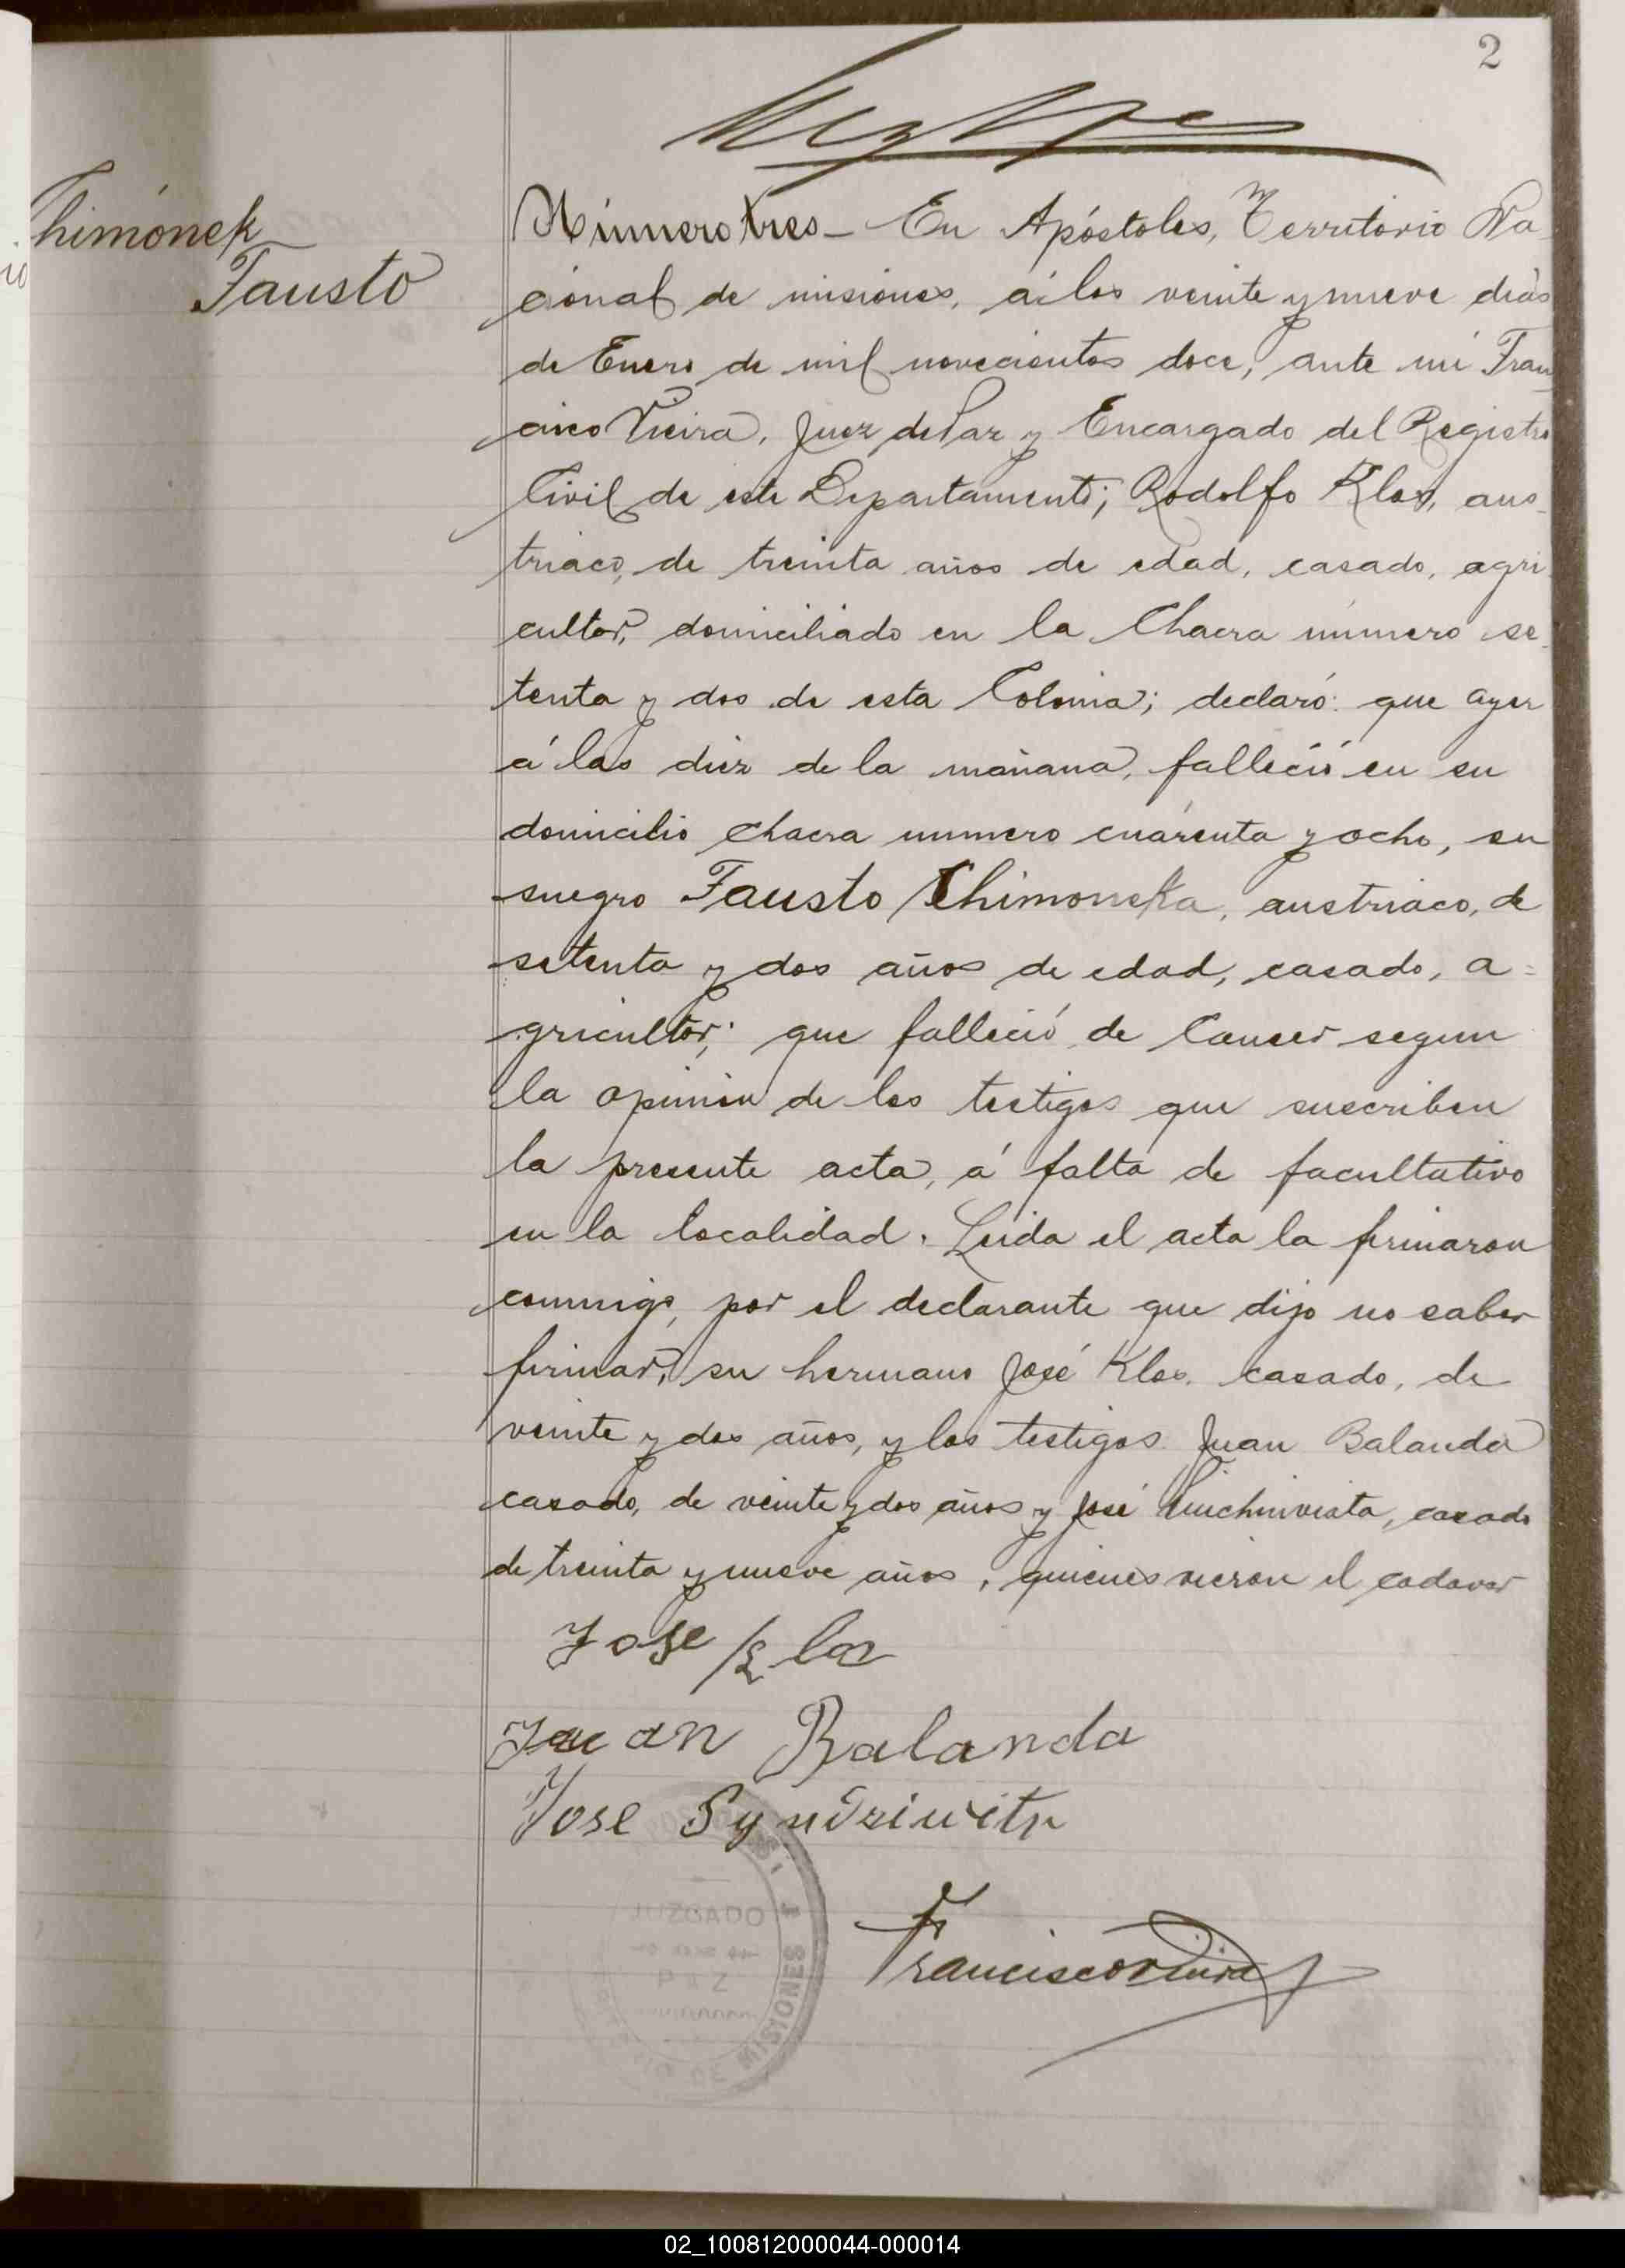 2
Thimónek
Fausto
Número tres - En Apóstoles, Territorio Na-
cional de misiones, á los veinte y nueve dias
de Enero de mil novecientos doce, ante mi Fran-
cisco Vieira, Juez de Paz y Encargado del Registro
Civil de este Departamento; Rodolfo Klos, aus-
triaco, de treinta años de edad, casado, agri-
cultor, domiciliado en la Chacra número se-
tenta y dos de esta Colonia; declaró: que ayer
á las diez de la mañana, falleció en su
domicilio chacra numero cuarenta y ocho, su
suegro Fausto Chimoneka, austriaco, de
setenta y dos años de edad, casado, a=
gricultor; que falleció de Cancer segun
la opinion de los testigos que suscriben
la presente acta, á falta de facultativo
en la localidad. Leida el acta la firmaron
conmigo, por el declarante que dijo no saber
firmar, su hermano José Klos, casado, de
veinte y dos años, y los testigos Juan Balanda
casado, de veinte y dos años y José, casado
de treinta y nueve años, quienes vieron el cadaver
Jose Klos
Juan Balanda
Jose
Francisco Vieira
JUZGADO
PAZ
MISIONES
02_100812000044-000014